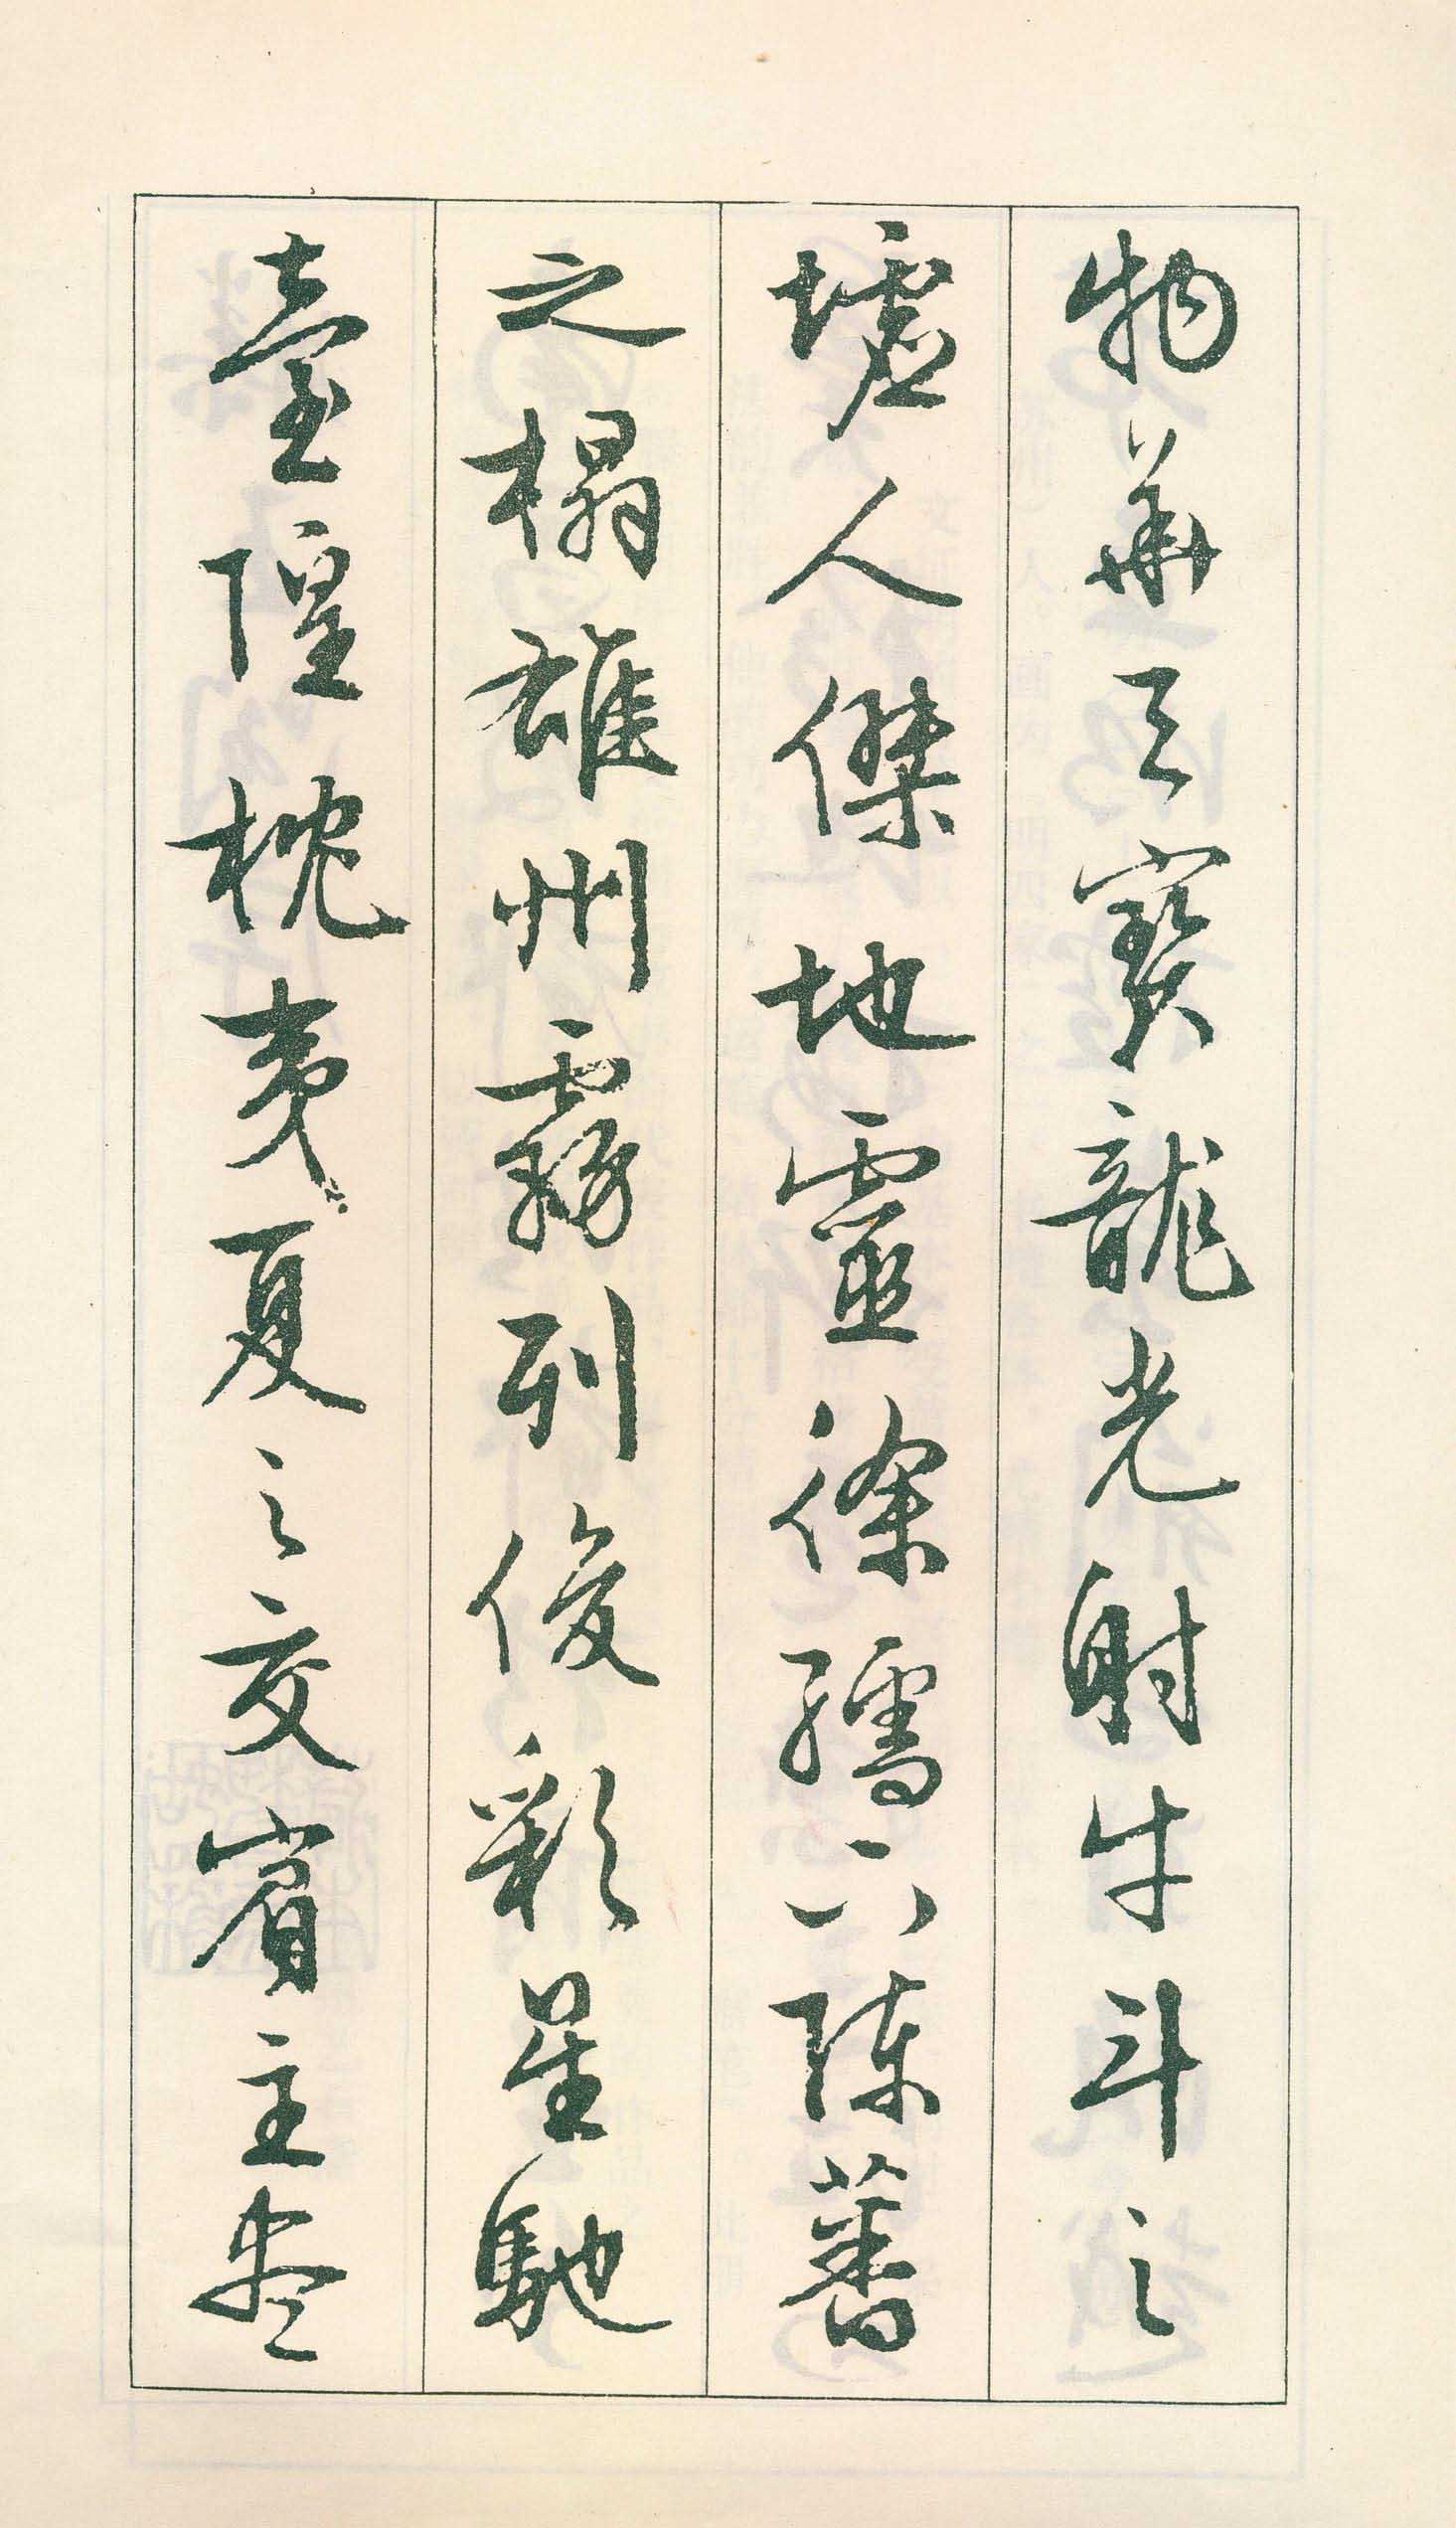 物華天寳龍光射牛斗之
墟人傑地靈徐孺下陳蕃
之榻雄州霧列俊彩星馳
臺隍枕夷夏之交賓主盡